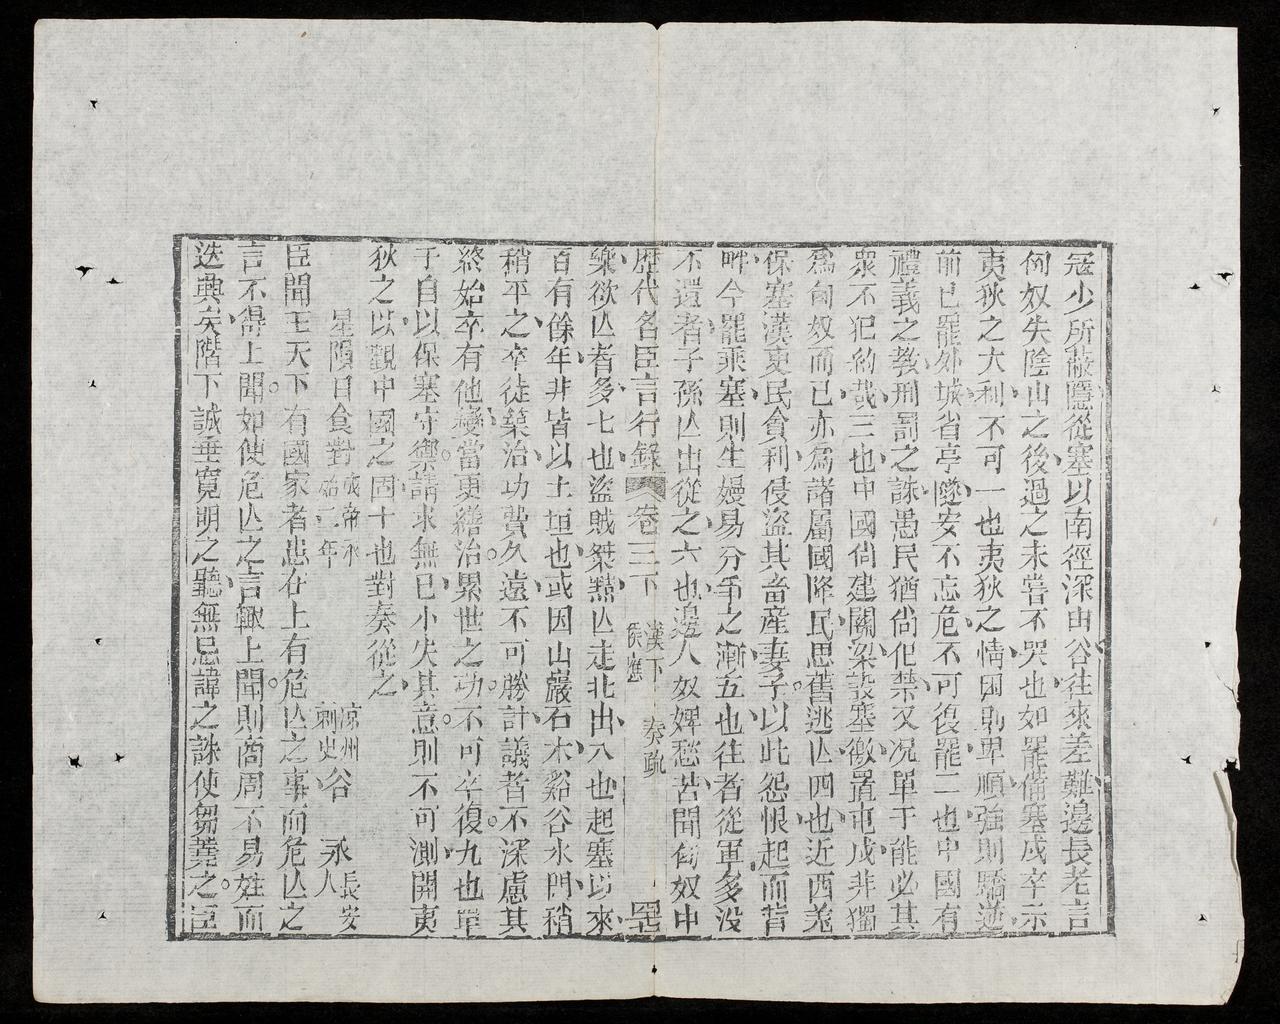 冦少所蔽隱從塞以南徑深山谷往來差難邊長老言
匈奴失陰山之後過之未嘗不哭也如罷備塞戍卒示
夷狄之大利不可一也夷狄之情困則卑順強則驕逆
前已罷外城省亭隧安不忘危不可復罷二也中國有
禮義之教刑罰之誅愚民猶尚犯禁又况單于能必其
衆不犯約哉三也中國尙建關梁設塞徼置屯戍非獨
爲匈奴而已亦爲諸屬國降民思舊逃亾四也近西羗
保塞漢吏民貪利侵盜其畜産妻子以此怨恨起而背
畔今罷乘塞則生嫚易分爭之漸五也往者從軍多没
不還者子孫亾出從之六也邊人奴婢愁苦聞匈奴中
歴代名臣言行錄 卷三下 漢下 侯應 奏疏
樂欲亾者多七也盜賊桀黠亾走北出八也起塞以來
百有餘年非皆以土垣也或因山巖石木谿谷水門稍
稍平之卒徒築治功費久遠不可勝計議者不深慮其
終始卒有他變當更繕治累世之功不可卒復九也單
于自以保塞守禦請求無已小失其意則不可測開夷
狄之以觀中國之固十也對奏從之
星隕日食對 成帝永始二年 涼州刺史谷永 長安人
臣聞王天下有國家者患在上有危亾之事而危亾之
言不得上聞如使危亾之言輒上聞則商周不易姓而
迭興矣階下誠垂寬明之聽無忌諱之誅使芻蕘之臣